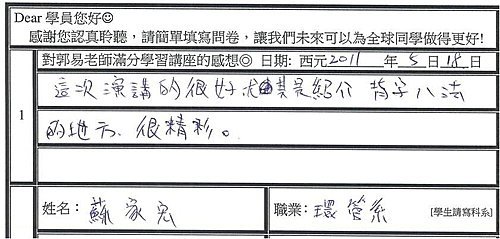 Dear 學員您好☺
感謝您認真聆聽，請簡單填寫問卷，讓我們未來可以為全球同學做得更好!
對郭易老師滿分學習講座的感想◎ 日期: 西元2011 年 5 月 18 日
1
這次演講的很好尤其是紹介 背字八法
的地方、很精彩。
姓名： 蘇家宏 職業：環管系 [學生請寫科系]